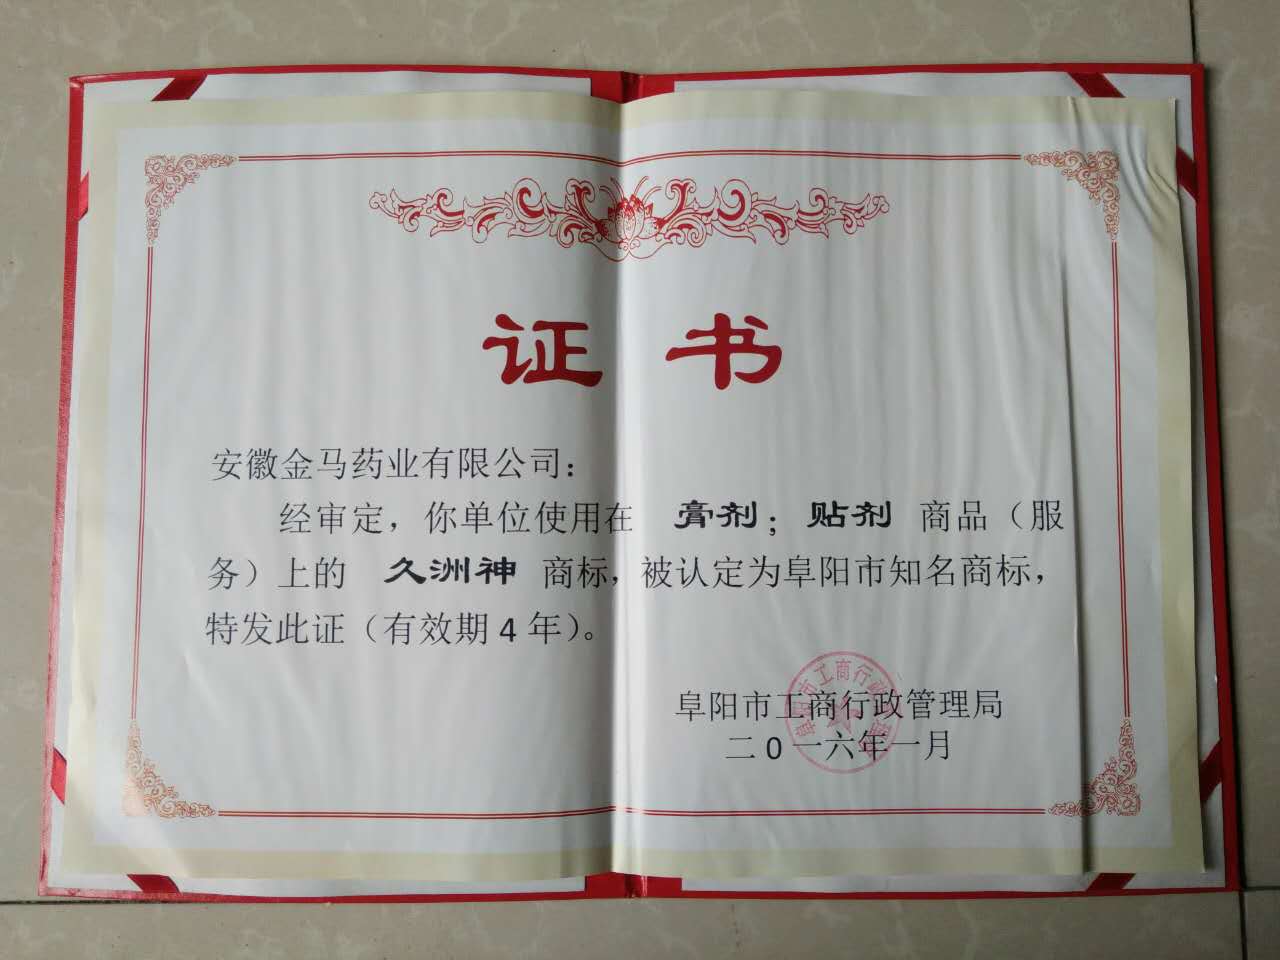 证书
安徽金马药业有限公司：
经审定，你单位使用在 膏剂；贴剂 商品（服
务）上的 久洲神 商标，被认定为阜阳市知名商标，
特发此证（有效期4年）。
阜阳市工商行政管理局
二0一六年一月
阜阳市工商行政